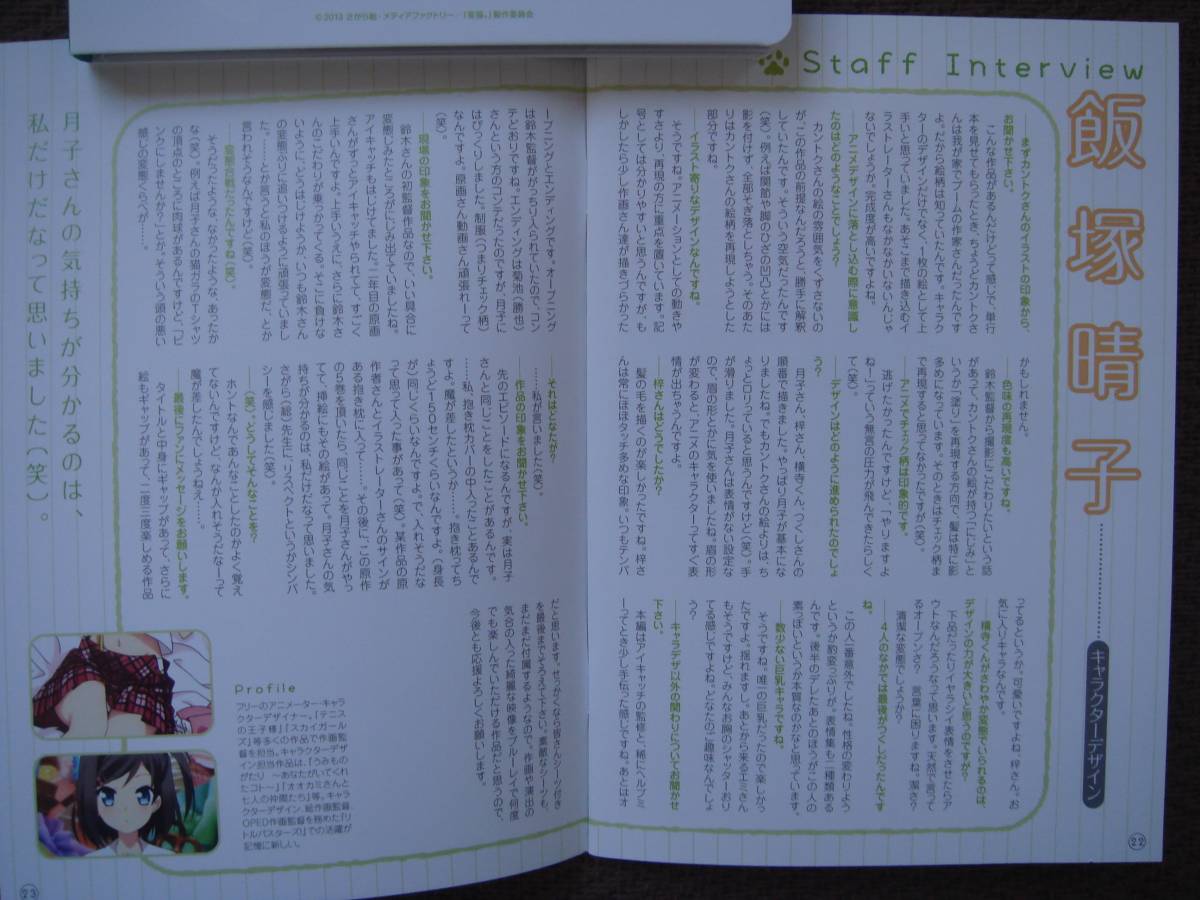 ©2013 さがら総・メディアファクトリー/「変猫。」製作委員会
Staff Interview
飯塚晴子
キャラクターデザイン
──まずカントクさんのイラストの印象から、
お聞かせ下さい。
こんな作品があるんだけどって感じで、単行
本を見せてもらったとき、ちょうどカントクさ
んは我が家でブームの作家さんだったんです
よ。だから絵柄は知っていたんです。キャラク
ターのデザインだけでなく、1枚の絵として上
手いと思っていました。あそこまで描き込むイ
ラストレーターさんもなかなかいないんじゃ
ないでしょうか。完成度が高いですよね。
──アニメデザインに落とし込む際に意識し
たのはどのようなことでしょう？
カントクさんの絵の雰囲気をくずさないの
が、この作品の前提なんだろうと、勝手に解釈
していたんです。そういう空気だったんです
(笑)。例えば関節や脚のひざの凹凸とかには
影を付けず、全部そぎ落としちゃう。そのあた
りはカントクさんの絵柄を再現しようとした
部分ですね。
──イラスト寄りなデザインなんですね。
そうですね。アニメーションとしての動きや
すさより、再現の方に重点を置いています。記
号としては分かりやすいと思うんですが、も
しかしたら少し作画さん達が描きづらかった
かもしれません。
──色味の再現度も高いですね。
鈴木監督から撮影にこだわりたいという話
があって、カントクさんの絵が持つ「にじみ」と
いうか「塗り」を再現する方向で、髪は特に影
多めになっています。そのときはチェック柄ま
で再現すると思ってなかったですが(笑)。
──アニメでチェック柄は印象的です。
逃げたかったんですけど、「やりますよ
ね！」っていう無言の圧力が飛んできたらしく
て(笑)。
──デザインはどのように進められたのでしょ
う？
月子さん、梓さん、横寺くん、つくしさんの
順番で描きました。やっぱり月子が基本にな
りましたね。でもカントクさんの絵よりは、ち
ょっとロリっていると思うんですけど(笑)。手
が滑りました。月子さんは表情がない設定な
ので、眉の形とかに気を使いましたね。眉の形
が変わると、アニメのキャラクターってすぐ表
情が出ちゃうんですよ。
──梓さんはどうでしたか？
髪の毛を描くのが楽しかったですね。梓さ
んは常にほほタッチ多めな印象。いつもテンパ
ってるというか。可愛いですよね、梓さん。お
気に入りキャラなんです。
──横寺くんがさわやか変態でいられるのは、
デザインの力が大きいと思うのですが？
下品だったりイヤラシイ表情をさせたらア
ウトなんだろうなって思います。天然で言って
るオープンさ？　言葉に困りますね。潔さ？
清潔な変態でしょうか？
──4人のなかでは最後がつくしだったんです
ね。
この人一番意外でしたね。性格の変わりよう
というか豹変っぷりが。表情集も二種類ある
んです。後半のデレたあとのほうがこの人の
素っぽいというか本質なのかなと思っています。
──数少ない巨乳キャラです。
そうですね。唯一の巨乳だったので楽しかっ
たですよ。揺れますし。あとから来るエミさん
もそうですけど、みんなお胸のシャッターおり
てる感じですよね。どなたのご趣味なんでしょ
う？
──キャラデザ以外の関わりについてお聞かせ
下さい。
本編はアイキャッチの監修と、稀にヘルプミ
ーってとき少し手伝った感じですね。あとはオ
ープニングとエンディングです。オープニング
は鈴木監督ががっちり入られていたので、コン
テどおりですね。エンディングは菊池(勝也)
さんという方のコンテだったのですが、月子に
はびっくりしました。制服(つまりチェック柄)
なんですよ。原画さん動画さん頑張れーって
(笑)。
──現場の印象をお聞かせ下さい。
鈴木さんの初監督作品なので、いい具合に
変態じみたところがにじみ出ていましたね。
アイキャッチもはじけてました。二年目の原画
さんがずっとアイキャッチやられてて、すごく
上手いんですよ。上手いうえに、さらに鈴木さ
んのこだわりが乗っかってくる。そこに負けな
いように、どうはじけようか、いつも鈴木さん
の変態ぶりに追いつけるように頑張っていまし
た。……とか言うと私のほうが変態だ、とか
言われそうなんですけど(笑)。
──変態合戦だったんですね(笑)。
そうだったような、なかったような、あったか
な(笑)。例えば月子さんの猫ガラのTシャツ
の頂点のところに肉球があるんですけど、「ピ
ンクにしませんか？」とか。そういう頭の悪い
感じの変態ぐらべが……。
──それはどなたが？
……私が言いました(笑)。
──作品の印象をお聞かせ下さい。
先のエピソードになるんですが、実は月子
さんと同じことをしたことがあるんです。
……私、抱き枕カバーの中入ったことあるんで
すよ。魔が差したというか……。抱き枕ってち
ょうど150センチくらいなんですよ。(身長
が)同じくらいなんですよ。で、入れそうだな
って思って入った事があって(笑)。某作品の原
作者さんとイラストレーターさんのサインが
ある抱き枕に入って……。その後に、この原作
の5巻を頂いたら、同じことを月子さんがやっ
てて、挿絵にもその絵があって。月子さんの気
持ちが分かるのは、私だけだなって思いました。
さがら(総)先生に、リスペクトというかシンパ
シーを感じました(笑)。
──(笑)。どうしてそんなことを？
ホントなんであんなことしたのかよく覚え
てないんですけど、なんか入れそうだなーって
魔が差したんでしょうねえ……。
──最後にファンにメッセージをお願いします。
タイトルと中身にギャップがあって、さらに
絵もギャップがあって、二度三度楽しめる作品
だと思います。せっかくなら皆さんシーツ付き
を最後までそろえて下さい。素敵なシーツも、
まだまだ付属するようなので。作画も演出の
気合の入った綺麗な映像をブルーレイで何度
でも楽しんでいただける作品だと思うので、
今後とも応援よろしくお願いします。
月子さんの気持ちが分かるのは、
私だけだなって思いました(笑)。
Profile
フリーのアニメーター・キャラ
クターデザイナー。「テニス
の王子様」「スカイガール
ズ」等多くの作品で作画監
督を担当。キャラクターデザ
イン担当作品は、「うみもの
がたり ～あなたがいてくれ
たコト～」「オオカミさんと
七人の仲間たち」等。キャラ
クターデザイン、総作画監督、
OPED作画監督を務めた「リ
トルバスターズ!」での活躍が
記憶に新しい。
22
23